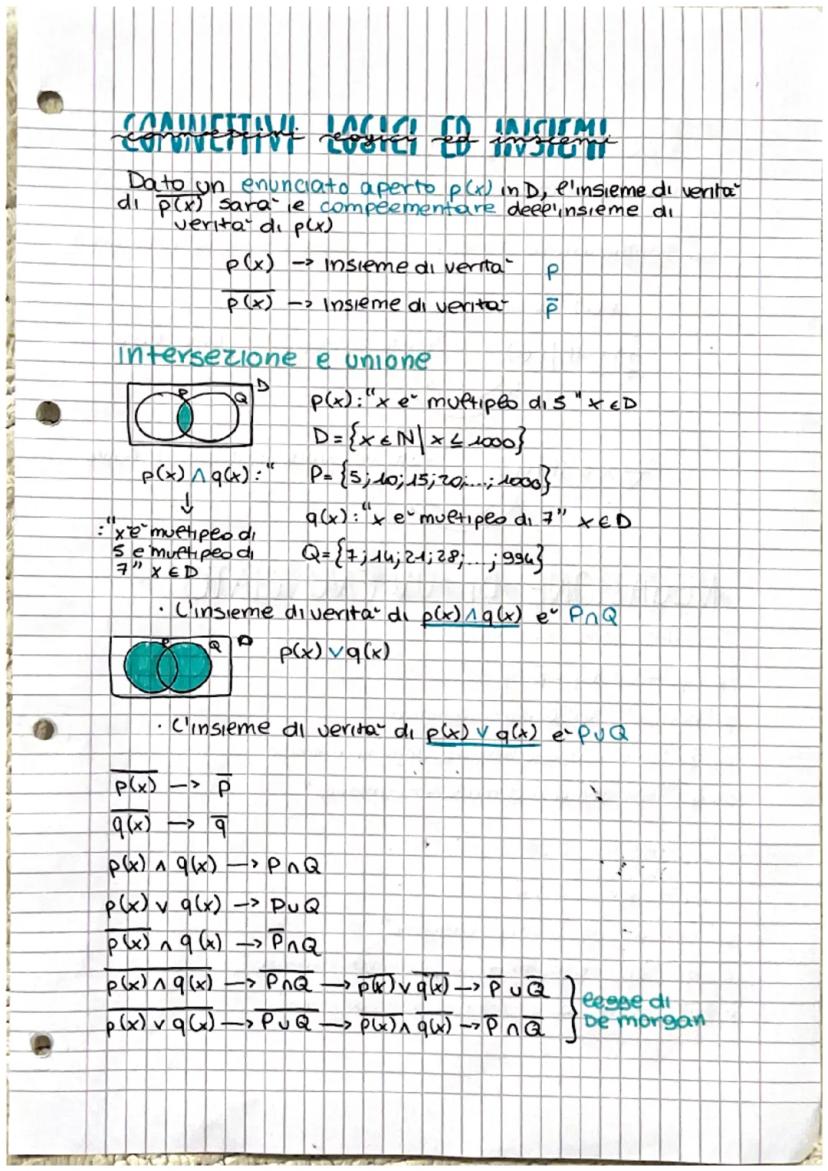 CONNETTIVI LOGICI ED INSIEMI
connettivi logici ed insiemi
Dato un enunciato aperto p(x) in D, l'insieme di verita'
di p̅(̅x̅)̅ sara' il complementare dell'insieme di
verita' di p(x)
p(x) -> insieme di verita' P
p̅(̅x̅)̅ -> insieme di verita' P̅
intersezione e unione
P Q D
p(x):"x e' multiplo di 5" x ∈ D
D={x ∈ N | x ≤ 1000}
p(x) ∧ q(x):"
P= {5;10;15;20;...;1000}
↓
:"x e' multiplo di
5 e multiplo di
7" x ∈ D
q(x):"x e' multiplo di 7" x ∈ D
Q={7;14;21;28;...;994}
· L'insieme di verita' di p(x) ∧ q(x) e' P∩Q
P Q D
p(x) ∨ q(x)
· L'insieme di verita' di p(x) ∨ q(x) e' P∪Q
p̅(̅x̅)̅ -> P̅
q̅(̅x̅)̅ -> q̅
p(x) ∧ q(x) -> P∩Q
p(x) ∨ q(x) -> P∪Q
p̅(̅x̅)̅ ∧ q(x) -> P̅∩Q
p̅(̅x̅)̅ ̅∧̅ ̅q̅(̅x̅)̅ -> P̅∩̅Q̅ -> p̅(̅x̅)̅ ∨ q̅(̅x̅)̅ -> P̅ ∪ Q̅
p̅(̅x̅)̅ ̅∨̅ ̅q̅(̅x̅)̅ -> P̅∪̅Q̅ -> p̅(̅x̅)̅ ∧ q̅(̅x̅)̅ -> P̅ ∩ Q̅
legge di
De morgan